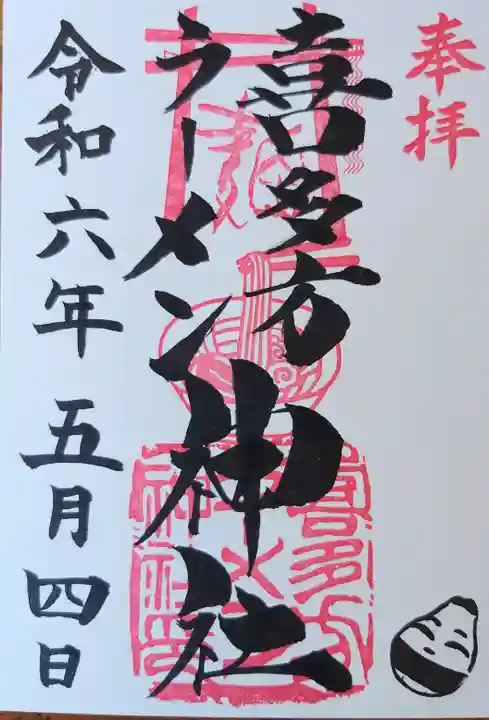 奉拝
喜多方
ラーメン
神社
令和六年五月四日